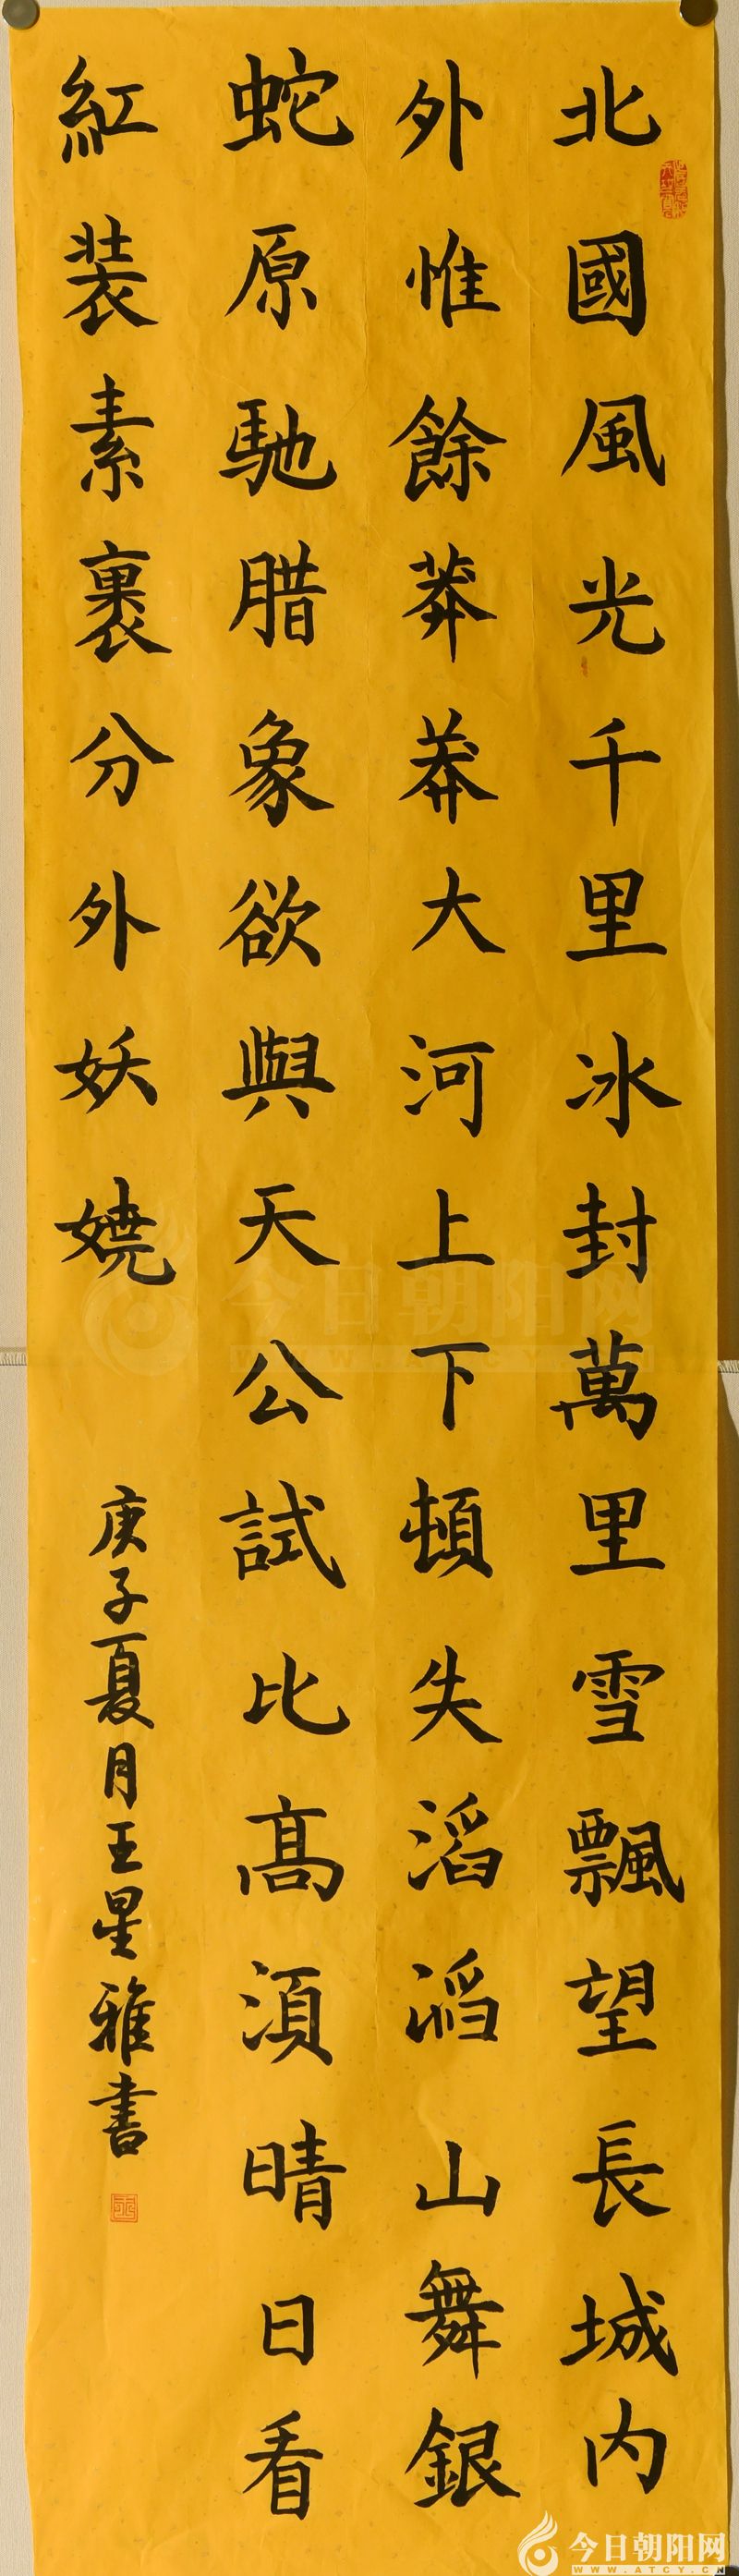 北國風光千里冰封萬里雪飄望長城内
外惟餘莽莽大河上下頓失滔滔山舞銀
蛇原馳腊象欲與天公試比高須晴日看
紅装素裹分外妖嬈
庚子夏月王星雅書
今日朝阳网
WWW.ATCY.CN
今日朝阳网
WWW.ATCY.CN